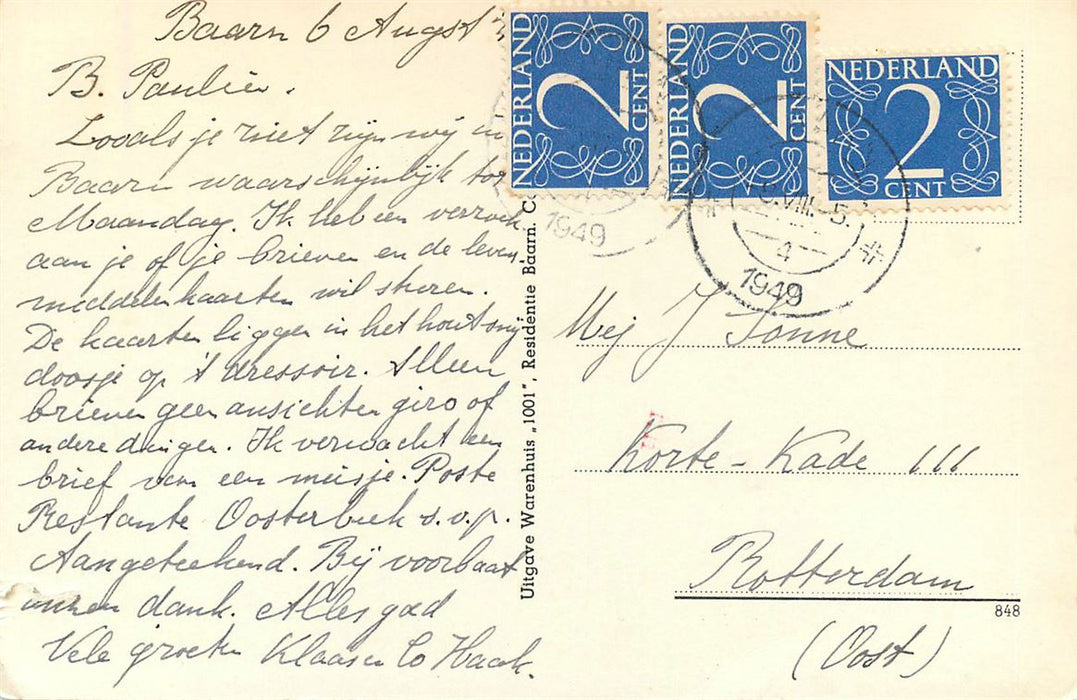 Baarn 6 Augst
B. Paulien.
Zooals je ziet zijn wij in
Baarn waarschijnlijk tot
Maandag. Ik heb een verzoek
aan je of je brieven en de leven
middelenkaarten wil sturen.
De kaarten liggen in het houtsnij
doosje op 't dressoir. Alleen
brieven geen ansichten giro of
andere dingen. Ik verwacht een
brief van een meisje. Poste
Restante Oosterbeek s.v.p.
Aangeteekend. Bij voorbaat
dank. Alles goed
Vele groeten Klaas en Co Haak.
Uitgave Warenhuis „1001", Residentie Baarn. C.
NEDERLAND
2
CENT
NEDERLAND
2
CENT
NEDERLAND
2
CENT
1949
VIII. 5.
4
1949
Mej J Tonne
Korte-Kade 111
Rotterdam
848
(Oost)